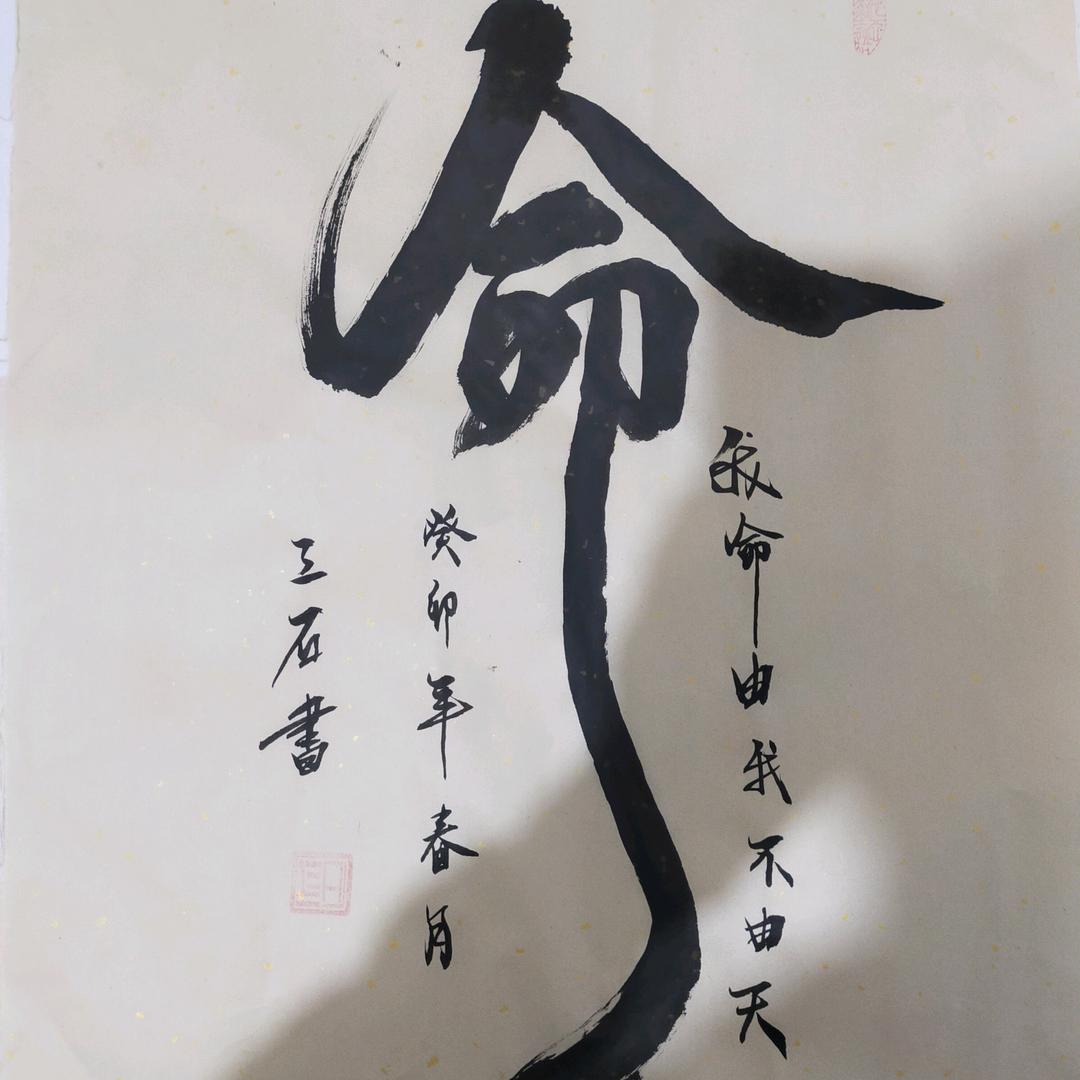 命
我命由我不由天
癸卯年春月
三石書